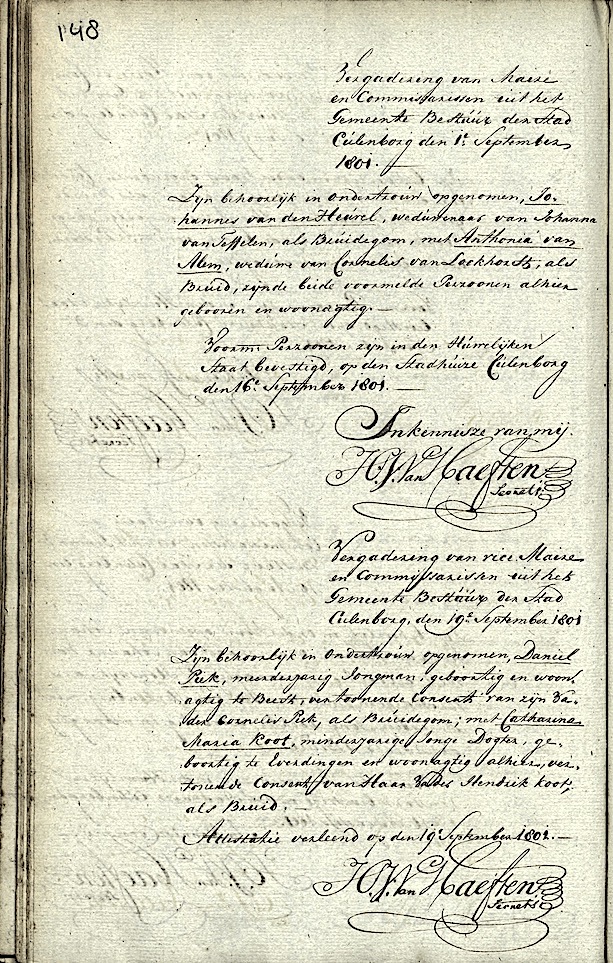 148
Vergadering van Maire
en Commissarissen uit het
Gemeente Bestúúr der Stad
Cúlenborg den 1e. September
1801.
Zijn behoorlijk in ondertroúw opgenomen, Jo-
hannes van den Heúvel, wedúwenaar van Johanna
van Teffelen, als Brúidegom, met Anthonia van
Alem, wedúwe van Cornelis van Lockhorst, als
Brúid, zijnde beide voormelde Perzoonen alhier
gebooren en woonagtig.
Voorm: Perzoonen zijn in den Húwelijken
Staat bevestigd, op den Stadhúize Cúlenborg
den 16e. September 1801.
In kennisze van mij.
H.J. Van Haeften
Secrets.
Vergadering van vice Maire
en Commissarissen uit het
Gemeente Bestúúr der Stad
Cúlenborg, den 19e September 1801
Zijn behoorlijk in ondertroúw opgenomen, Daniel
Piek, meerderjarig Jongman, geboortig en woon-
agtig te Beest, vertoonende Consent van zijn Va-
der Cornelis Piek, als Brúidegom; met Catharina
Maria Koot, minderjarige Jonge Dogter, ge-
boortig te Everdingen en woonagtig alhier, ver-
tonende Consent van Haar Vader Hendrik Koot,
als Brúid.
Attestatie verleend op den 19e September 1801.
H.J. Van Haeften
Secrets.